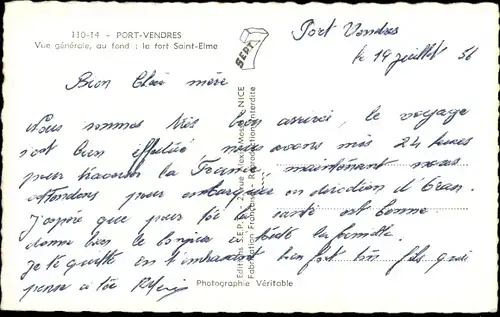 110-14 - PORT-VENDRES
Vue générale, au fond : le fort Saint-Elme
SEPT
Port Vendres
le 19 juillet 56
Bien Chère mère
Nous sommes très bien arrivés, le voyage
s'est bien effectué nous avons mis 24 heures
pour traverser la France, maintenant nous
attendons pour embarquer en direction d'Oran.
J'espère que pour toi la santé est bonne
donne bien le bonjour à toute la famille.
Je te quitte en t'embrassant bien fort ton fils qui
pense à toi
Editions S.E.P.T., 2, rue Alex-Mesnier NICE
Fabrication Française - Reproduction Interdite
Photographie Véritable